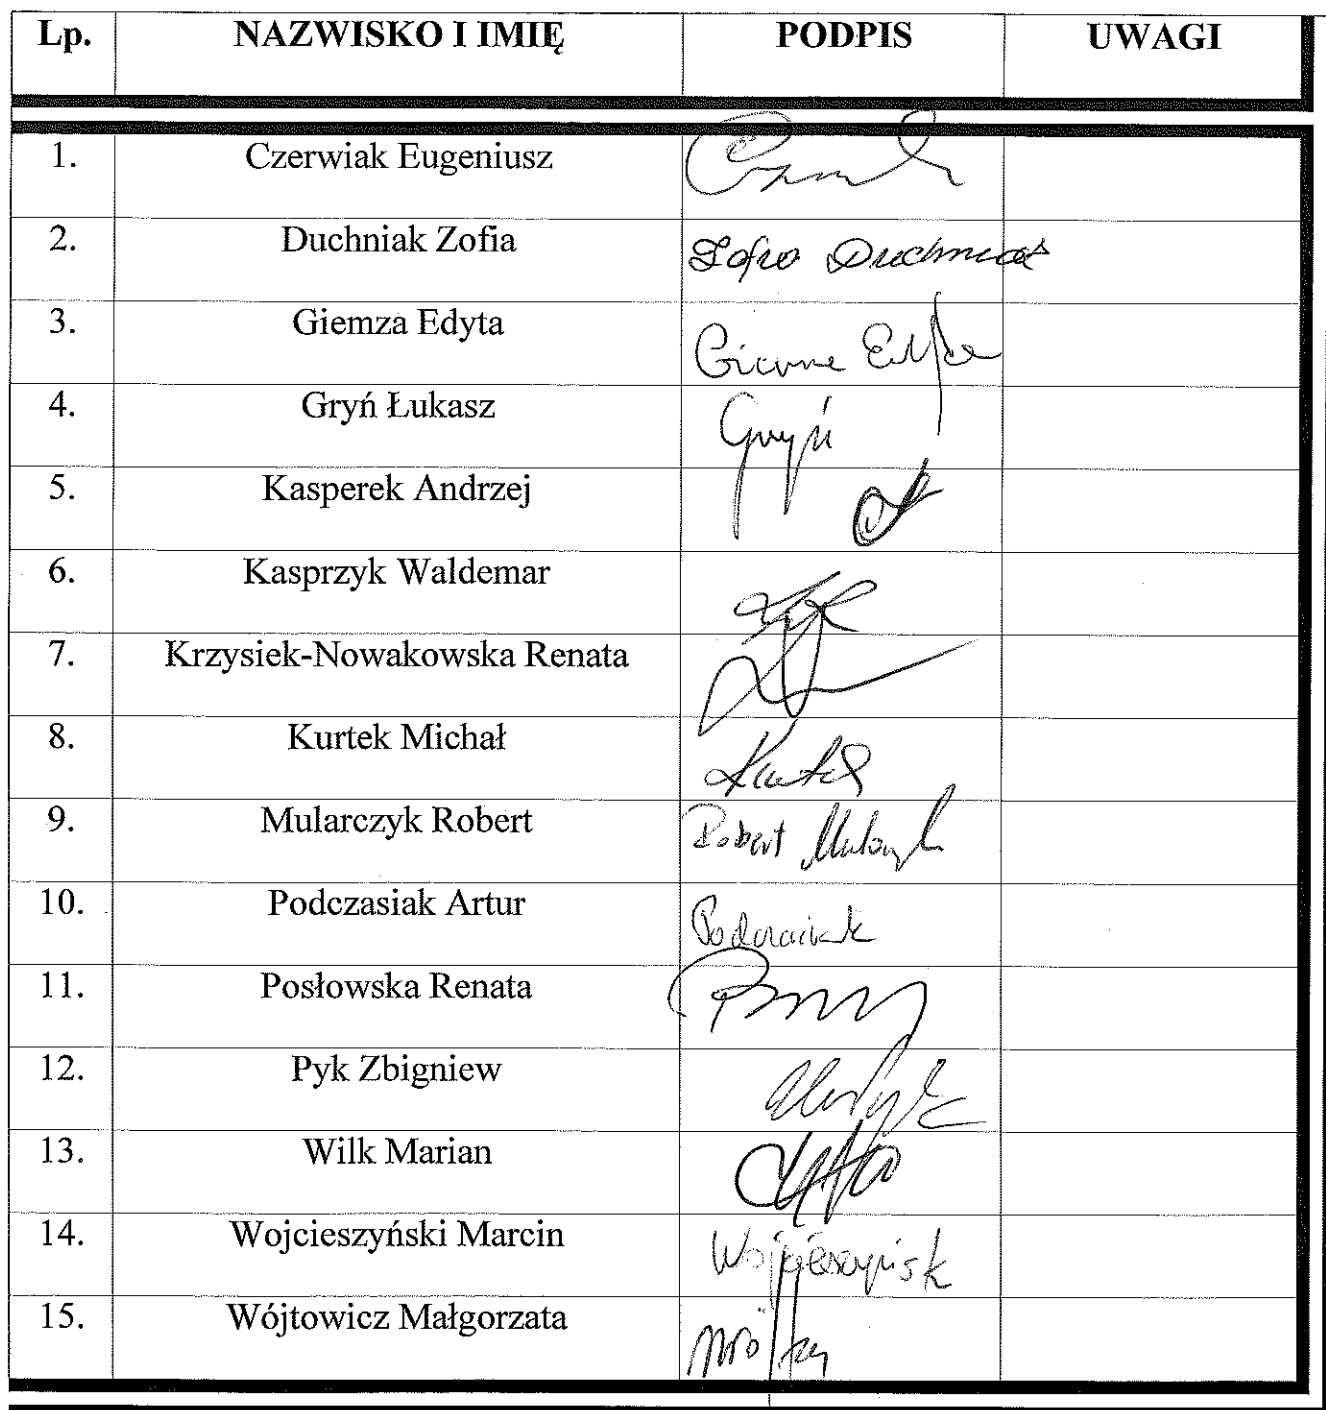 Lp. NAZWISKO I IMIĘ PODPIS UWAGI
1. Czerwiak Eugeniusz
2. Duchniak Zofia Zofia Duchniak
3. Giemza Edyta Giemza Edyta
4. Gryń Łukasz Gryń
5. Kasperek Andrzej
6. Kasprzyk Waldemar
7. Krzysiek-Nowakowska Renata
8. Kurtek Michał Kurtek
9. Mularczyk Robert Robert Mularczyk
10. Podczasiak Artur Podczasiak
11. Posłowska Renata
12. Pyk Zbigniew
13. Wilk Marian
14. Wojcieszyński Marcin Wojcieszyński
15. Wójtowicz Małgorzata